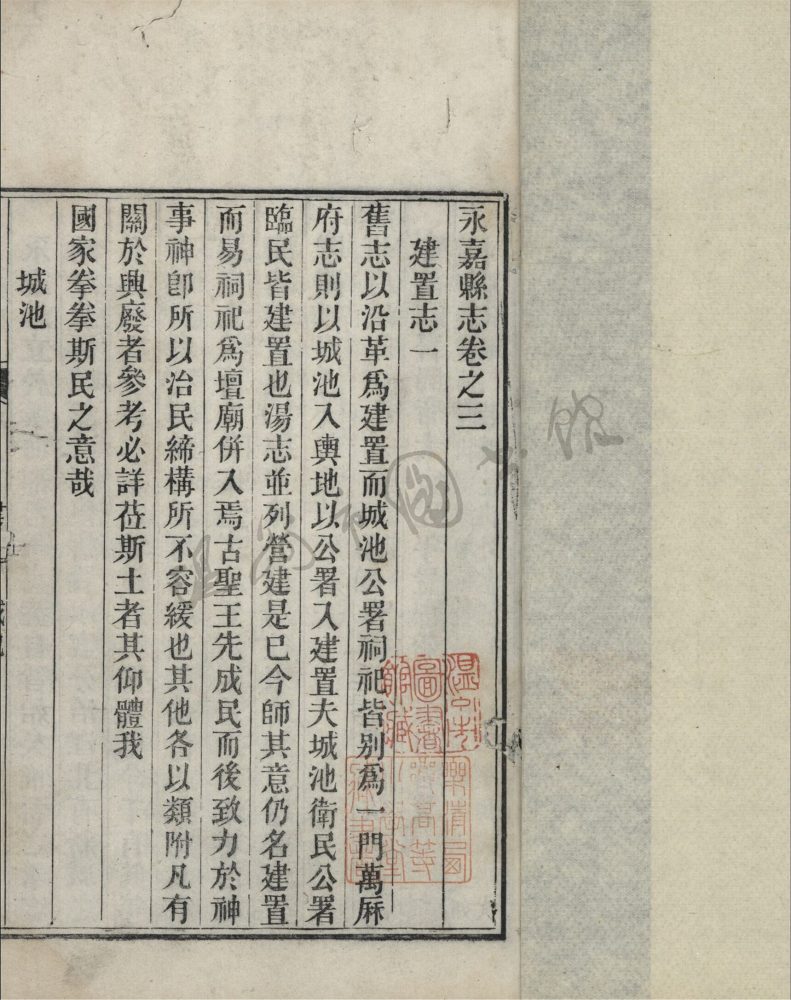 永嘉縣志卷之三
建置志一
舊志以沿革爲建置而城池公署祠祀皆別爲一門萬厤
府志則以城池入輿地以公署入建置夫城池衛民公署
臨民皆建置也湯志並列營建是已今師其意仍名建置
而易祠祀爲壇廟併入焉古聖王先成民而後致力於神
事神卽所以治民締構所不容緩也其他各以類附凡有
關於興廢者參考必詳莅斯土者其仰體我
國家拳拳斯民之意哉
城池
溫州市
圖書
館藏